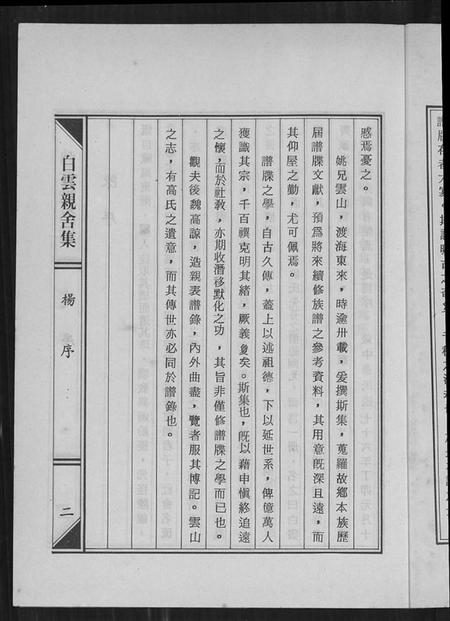 慼焉憂之。
姚兄雲山，渡海東來，時逾卅載，爰撰斯集，蒐羅故鄉本族歷
屆譜牒文獻，預為將來續修族譜之參考資料，其用意旣深且遠，而
其仰屋之勤，尤可佩焉。
譜牒之學，自古久傳，蓋上以述祖德，下以延世系，俾億萬人
獲識其宗，千百禩克明其緒，厥義敻矣。斯集也，旣以藉申愼終追遠
之懷，而於社敎，亦期收潛移默化之功，其旨非僅修譜牒之學而已也。
觀夫後魏高諒，造親表譜錄，內外曲盡，覽者服其博記。雲山
之志，有高氏之遺意，而其傳世亦必同於譜錄也。
白雲親舍集
楊序
二